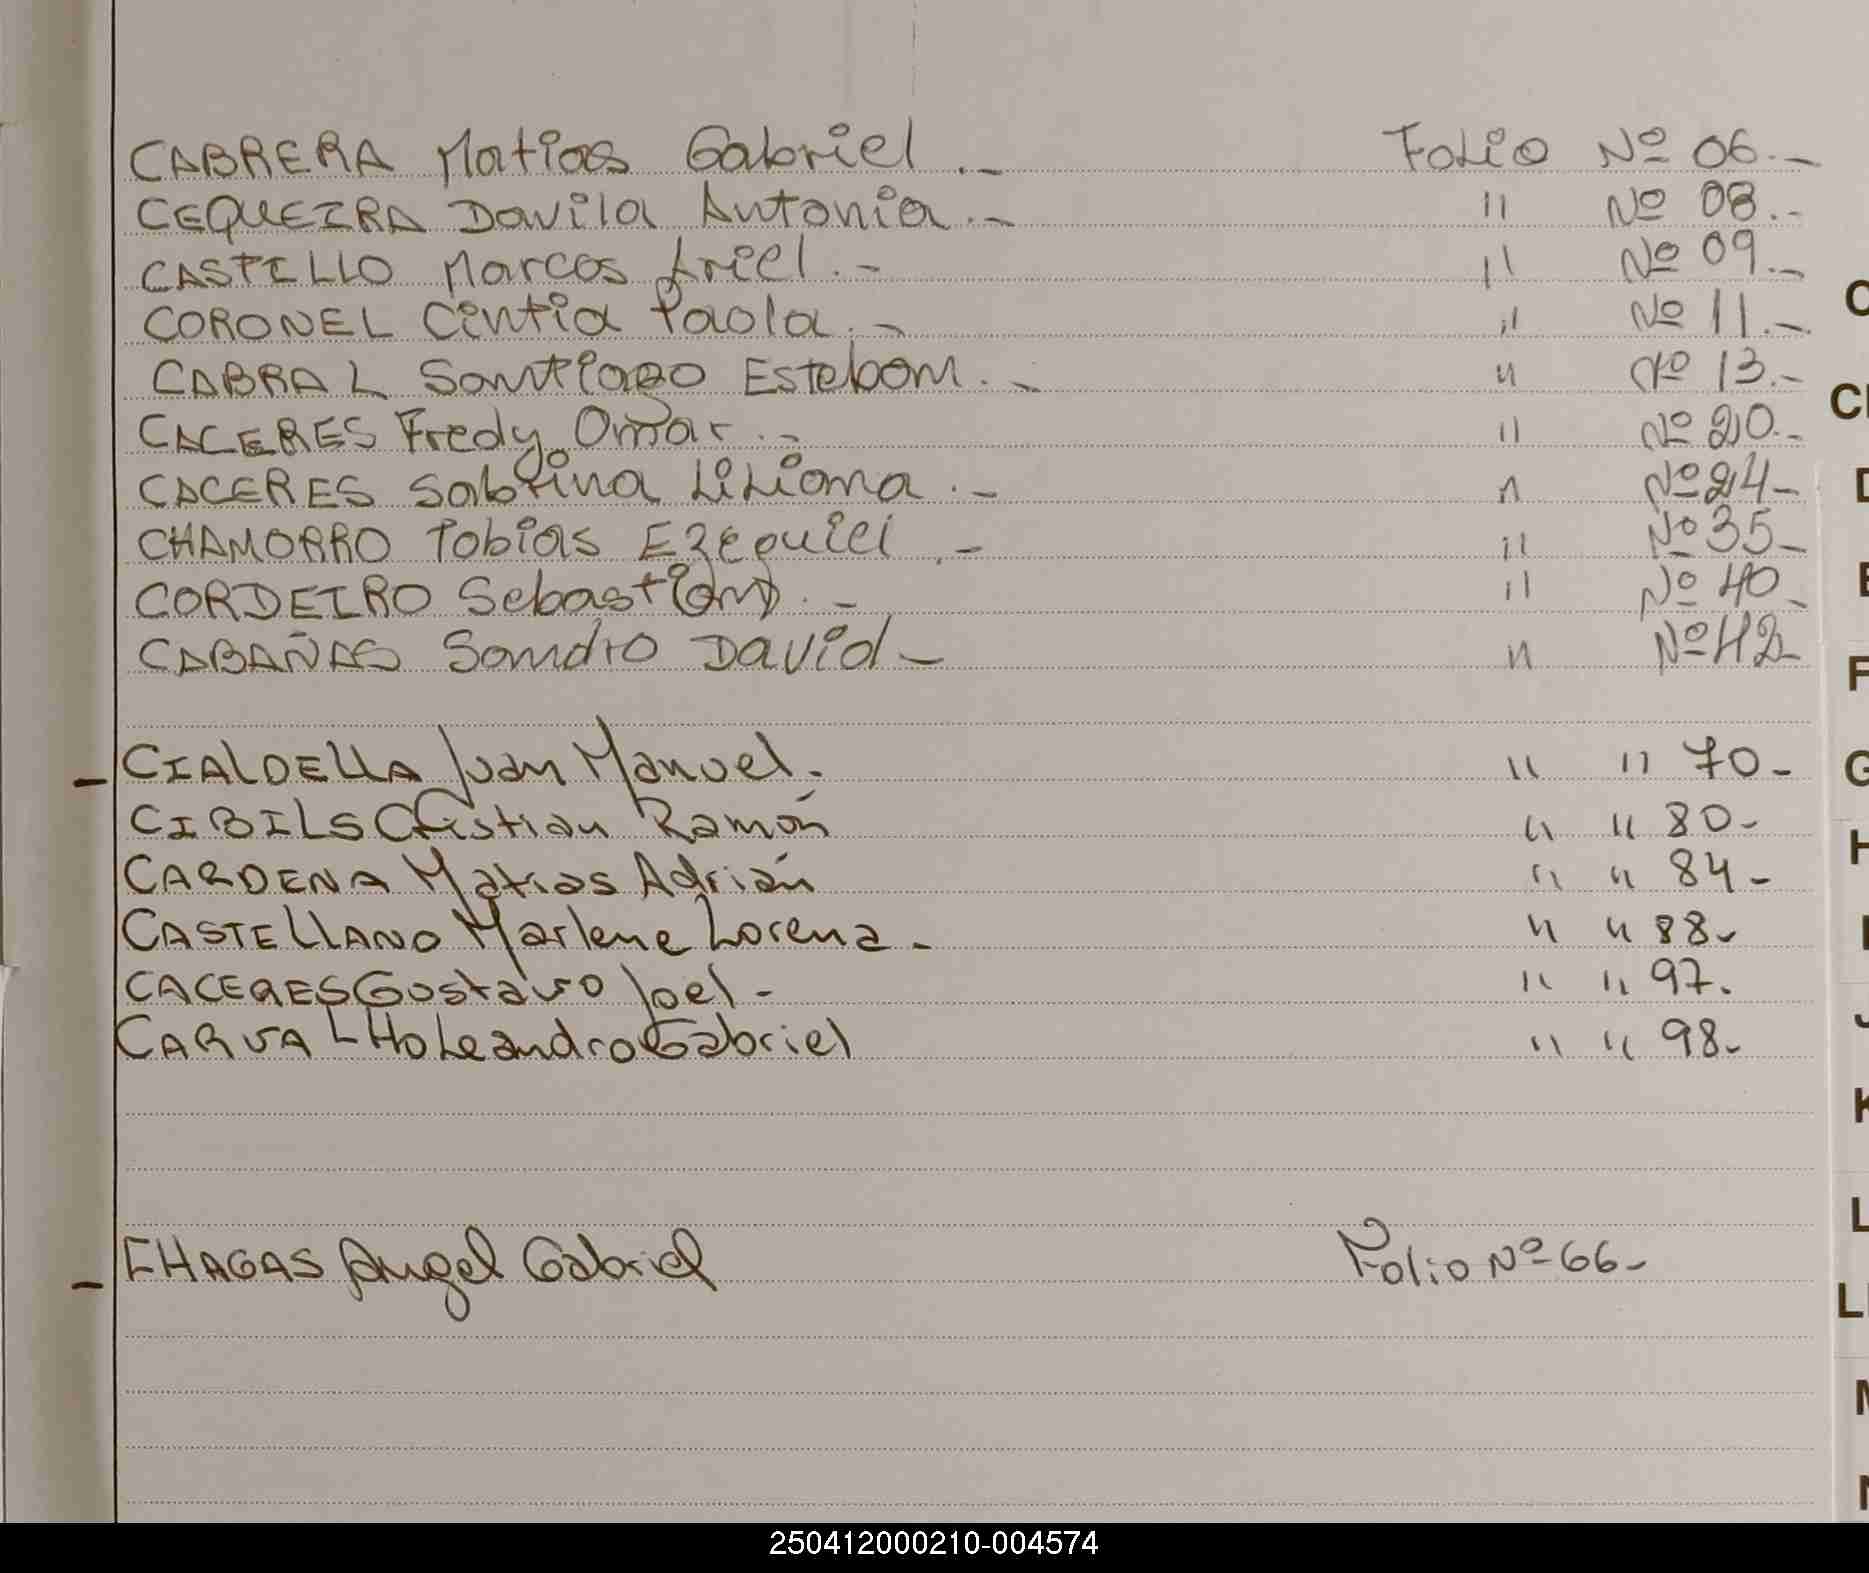 CABRERA Matias Gabriel.- Folio Nº 06.-
CEQUEIRA Davila Antonia.- " Nº 08.-
CASTILLO Marcos Ariel.- " Nº 09.-
CORONEL Cintia Paola.- " Nº 11.-
CABRAL Santiago Esteban.- " Nº 13.-
CACERES Fredy Omar.- " Nº 20.-
CACERES Sabrina Liliana.- " Nº 24-
CHAMORRO Tobias Ezequiel.- " Nº 35-
CORDEIRO Sebastian.- " Nº 40-
CABAÑAS Sandro David- " Nº 42-
- CIALDELLA Juan Manuel.- " " 70-
CIBILS Cristian Ramón " " 80-
CARDENA Matias Adrián " " 84-
CASTELLANO Marlene Lorena- " " 88-
CACERES Gustavo Joel- " " 97.
CARVALHO Leandro Gabriel " " 98-
- CHAGAS Angel Gabriel Folio Nº 66-
C
D
E
F
G
H
I
J
K
L
M
N
250412000210-004574